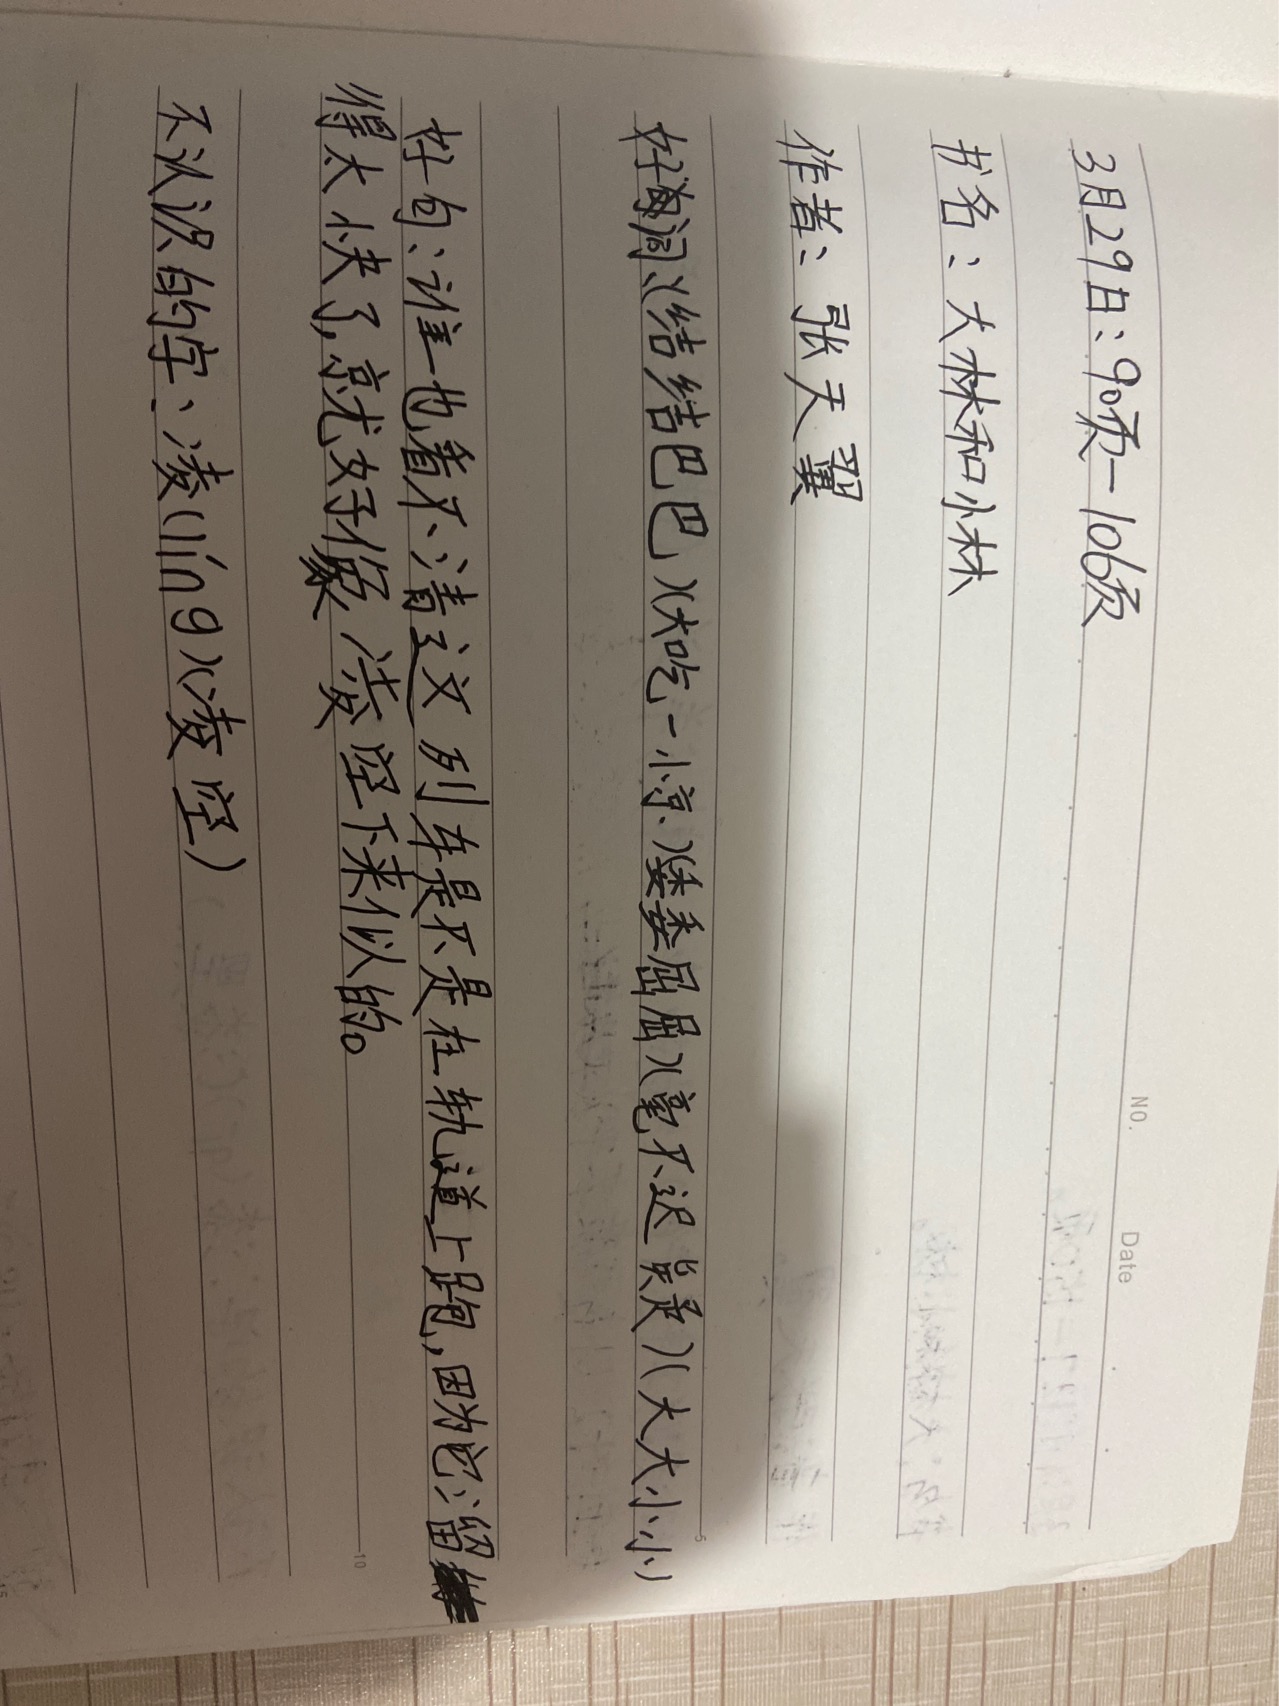 NO.
Date
3月29日:90页—106页
书名:大林和小林
作者:张天翼
好词:(结结巴巴)(大吃一惊)(委委屈屈)(毫不迟疑)(大大小小)
5
好句:谁也看不清这列车是不是在轨道上跑,因为它溜
得太快了,就好像凌空下来似的。
10
不认识的字:凌(líng)(凌空)